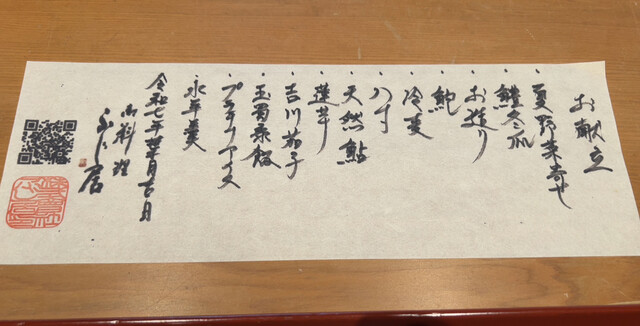 お献立
・夏野菜寄せ
・鱧冬瓜
・お造り
・鮑
・冷麦
・八寸
・天然鮎
・蓮芋
・吉川茄子
・玉蜀黍飯
・プラリアイス
・水羊羹
令和七年 月吉日
御料理
居